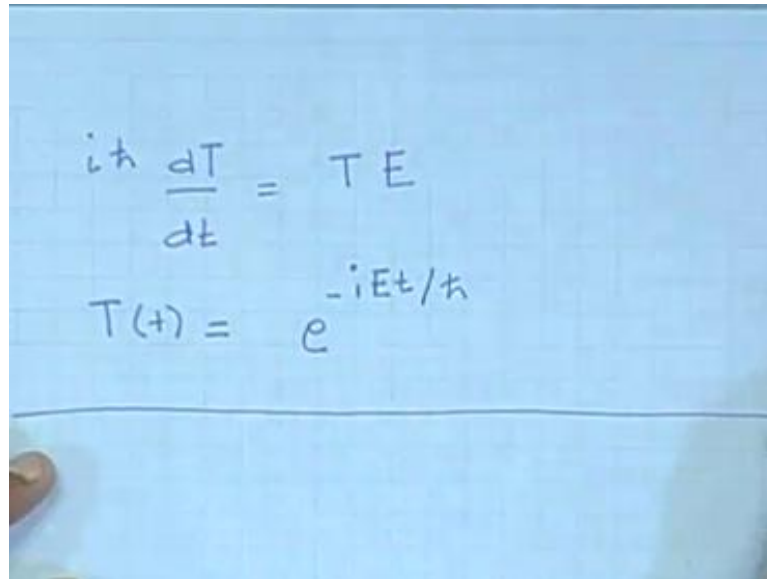 iħ dT/dt = TE
T(t) = e^-iEt/ħ